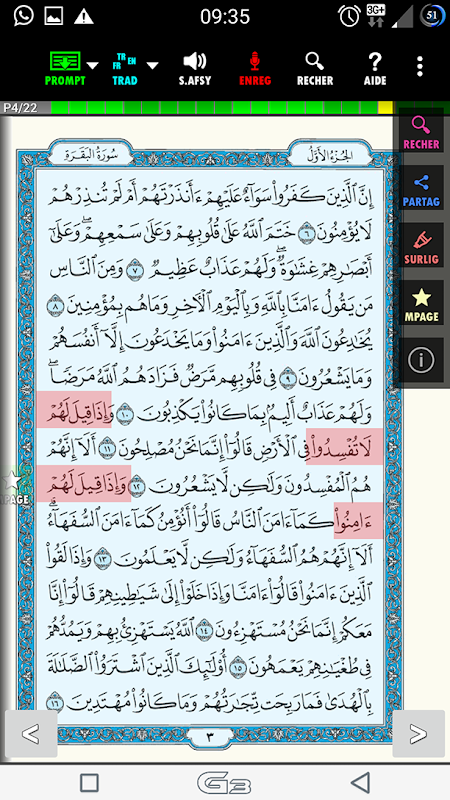 09:35
3G+
51
PROMPT
TR FR EN
TRAD
S.AFSY
ENREG
RECHER
AIDE
P4/22
RECHER
PARTAG
SURLIG
MPAGE
MPAGE
سُورَةُ البَقَرَةِ
الجُزْءُ الأَوَّلُ
إِنَّ ٱلَّذِينَ كَفَرُوا۟ سَوَآءٌ عَلَيْهِمْ ءَأَنذَرْتَهُمْ أَمْ لَمْ تُنذِرْهُمْ
لَا يُؤْمِنُونَ ٦ خَتَمَ ٱللَّهُ عَلَىٰ قُلُوبِهِمْ وَعَلَىٰ سَمْعِهِمْ ۖ وَعَلَىٰٓ
أَبْصَٰرِهِمْ غِشَٰوَةٌ ۖ وَلَهُمْ عَذَابٌ عَظِيمٌ ٧ وَمِنَ ٱلنَّاسِ
مَن يَقُولُ ءَامَنَّا بِٱللَّهِ وَبِٱلْيَوْمِ ٱلْءَاخِرِ وَمَا هُم بِمُؤْمِنِينَ ٨
يُخَٰدِعُونَ ٱللَّهَ وَٱلَّذِينَ ءَامَنُوا۟ وَمَا يَخْدَعُونَ إِلَّآ أَنفُسَهُمْ
وَمَا يَشْعُرُونَ ٩ فِى قُلُوبِهِم مَّرَضٌ فَزَادَهُمُ ٱللَّهُ مَرَضًا ۖ
وَلَهُمْ عَذَابٌ أَلِيمٌۢ بِمَا كَانُوا۟ يَكْذِبُونَ ١٠ وَإِذَا قِيلَ لَهُمْ
لَا تُفْسِدُوا۟ فِى ٱلْأَرْضِ قَالُوٓا۟ إِنَّمَا نَحْنُ مُصْلِحُونَ ١١ أَلَآ إِنَّهُمْ
هُمُ ٱلْمُفْسِدُونَ وَلَٰكِن لَّا يَشْعُرُونَ ١٢ وَإِذَا قِيلَ لَهُمْ
ءَامِنُوا۟ كَمَآ ءَامَنَ ٱلنَّاسُ قَالُوٓا۟ أَنُؤْمِنُ كَمَآ ءَامَنَ ٱلسُّفَهَآءُ ۗ
أَلَآ إِنَّهُمْ هُمُ ٱلسُّفَهَآءُ وَلَٰكِن لَّا يَعْلَمُونَ ١٣ وَإِذَا لَقُوا۟
ٱلَّذِينَ ءَامَنُوا۟ قَالُوٓا۟ ءَامَنَّا وَإِذَا خَلَوْا۟ إِلَىٰ شَيَٰطِينِهِمْ قَالُوٓا۟ إِنَّا
مَعَكُمْ إِنَّمَا نَحْنُ مُسْتَهْزِءُونَ ١٤ ٱللَّهُ يَسْتَهْزِئُ بِهِمْ وَيَمُدُّهُمْ
فِى طُغْيَٰنِهِمْ يَعْمَهُونَ ١٥ أُو۟لَٰٓئِكَ ٱلَّذِينَ ٱشْتَرَوُا۟ ٱلضَّلَٰلَةَ
بِٱلْهُدَىٰ فَمَا رَبِحَت تِّجَٰرَتُهُمْ وَمَا كَانُوا۟ مُهْتَدِينَ ١٦
<
٣
>
G3